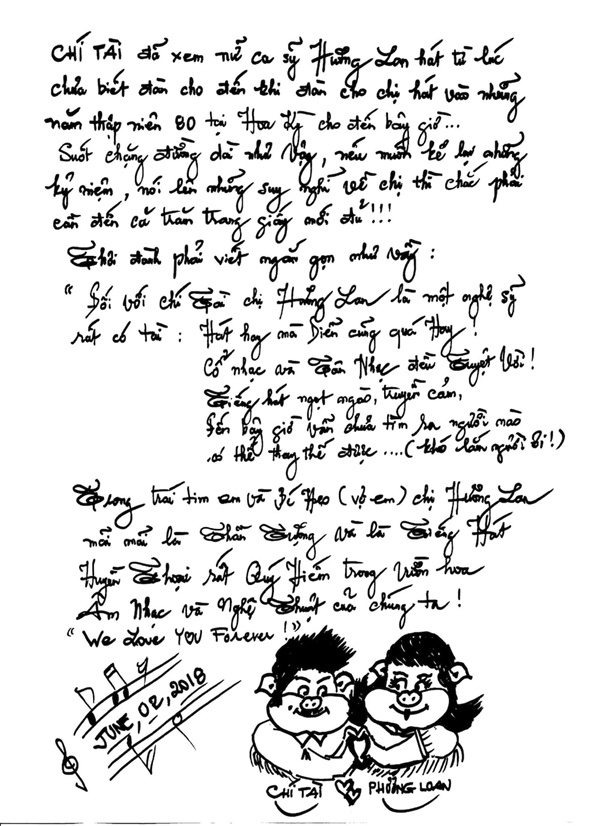 CHÍ TÀI đã xem nữ ca sỹ Hương Lan hát từ lúc
chưa biết đàn cho đến khi đàn cho chị hát vào những
năm thập niên 80 tại Hoa Kỳ cho đến bây giờ...
Suốt chặng đường dài như vậy, nếu muốn kể lại những
kỷ niệm, nói lên những suy nghĩ về chị thì chắc phải
cần đến cả trăm trang giấy mới đủ!!!
Thôi đành phải viết ngắn gọn như vầy:
"Đối với chí Tài chị Hương Lan là một nghệ sỹ
rất có tài: Hát hay mà Diễn cũng quá Hay!
Cổ nhạc và Tân Nhạc đều Tuyệt Vời!
Tiếng hát ngọt ngào, truyền cảm,
Đến bây giờ vẫn chưa tìm ra người nào
có thể thay thế được ....(khó lắm người ơi!)
Trong trái tim em và Bé Heo (vợ em) chị Hương Lan
mãi mãi là Thần Tượng và là Tiếng Hát
Huyền Thoại rất Quý Hiếm trong vườn hoa
Âm Nhạc và Nghệ Thuật của chúng ta!
"We Love YOU Forever!"
JUNE, 02, 2018
CHÍ TÀI PHƯƠNG LOAN